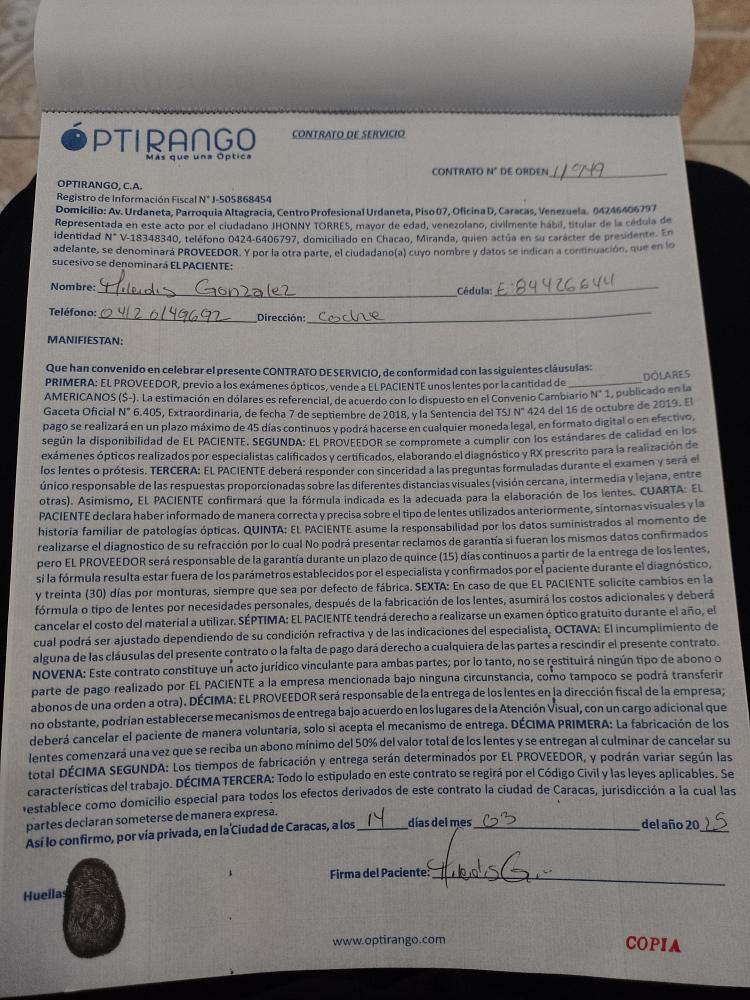 ÓPTIRANGO
Más que una Óptica
CONTRATO DE SERVICIO
CONTRATO N° DE ORDEN
OPTIRANGO, C.A.
Registro de Información Fiscal N° J-505868454
Domicilio: Av. Urdaneta, Parroquia Altagracia, Centro Profesional Urdaneta, Piso 07, Oficina D, Caracas, Venezuela. 04246406797
Representada en este acto por el ciudadano JHONNY TORRES, mayor de edad, venezolano, civilmente hábil, titular de la cédula de
identidad N° V-18348340, teléfono 0424-6406797, domiciliado en Chacao, Miranda, quien actúa en su carácter de presidente. En
adelante, se denominará PROVEEDOR. Y por la otra parte, el ciudadano(a) cuyo nombre y datos se indican a continuación, que en lo
sucesivo se denominará EL PACIENTE:
Nombre: Gonzalez Cédula: E:84426644
Teléfono: 04120149692 Dirección: coche
MANIFIESTAN:
Que han convenido en celebrar el presente CONTRATO DE SERVICIO, de conformidad con las siguientes cláusulas:
PRIMERA: EL PROVEEDOR, previo a los exámenes ópticos, vende a EL PACIENTE unos lentes por la cantidad de ____________ DÓLARES
AMERICANOS ($-). La estimación en dólares es referencial, de acuerdo con lo dispuesto en el Convenio Cambiario N° 1, publicado en la
Gaceta Oficial N° 6.405, Extraordinaria, de fecha 7 de septiembre de 2018, y la Sentencia del TSJ N° 424 del 16 de octubre de 2019. El
pago se realizará en un plazo máximo de 45 días continuos y podrá hacerse en cualquier moneda legal, en formato digital o en efectivo,
según la disponibilidad de EL PACIENTE. SEGUNDA: EL PROVEEDOR se compromete a cumplir con los estándares de calidad en los
exámenes ópticos realizados por especialistas calificados y certificados, elaborando el diagnóstico y RX prescrito para la realización de
los lentes o prótesis. TERCERA: EL PACIENTE deberá responder con sinceridad a las preguntas formuladas durante el examen y será el
único responsable de las respuestas proporcionadas sobre las diferentes distancias visuales (visión cercana, intermedia y lejana, entre
otras). Asimismo, EL PACIENTE confirmará que la fórmula indicada es la adecuada para la elaboración de los lentes. CUARTA: EL
PACIENTE declara haber informado de manera correcta y precisa sobre el tipo de lentes utilizados anteriormente, síntomas visuales y la
historia familiar de patologías ópticas. QUINTA: EL PACIENTE asume la responsabilidad por los datos suministrados al momento de
realizarse el diagnostico de su refracción por lo cual No podrá presentar reclamos de garantía si fueran los mismos datos confirmados
pero EL PROVEEDOR será responsable de la garantía durante un plazo de quince (15) días continuos a partir de la entrega de los lentes,
si la fórmula resulta estar fuera de los parámetros establecidos por el especialista y confirmados por el paciente durante el diagnóstico,
y treinta (30) días por monturas, siempre que sea por defecto de fábrica. SEXTA: En caso de que EL PACIENTE solicite cambios en la
fórmula o tipo de lentes por necesidades personales, después de la fabricación de los lentes, asumirá los costos adicionales y deberá
cancelar el costo del material a utilizar. SÉPTIMA: EL PACIENTE tendrá derecho a realizarse un examen óptico gratuito durante el año, el
cual podrá ser ajustado dependiendo de su condición refractiva y de las indicaciones del especialista. OCTAVA: El incumplimiento de
alguna de las cláusulas del presente contrato o la falta de pago dará derecho a cualquiera de las partes a rescindir el presente contrato.
NOVENA: Este contrato constituye un acto jurídico vinculante para ambas partes; por lo tanto, no se restituirá ningún tipo de abono o
parte de pago realizado por EL PACIENTE a la empresa mencionada bajo ninguna circunstancia, como tampoco se podrá transferir
abonos de una orden a otra). DÉCIMA: EL PROVEEDOR será responsable de la entrega de los lentes en la dirección fiscal de la empresa;
no obstante, podrían establecerse mecanismos de entrega bajo acuerdo en los lugares de la Atención Visual, con un cargo adicional que
deberá cancelar el paciente de manera voluntaria, solo si acepta el mecanismo de entrega. DÉCIMA PRIMERA: La fabricación de los
lentes comenzará una vez que se reciba un abono mínimo del 50% del valor total de los lentes y se entregan al culminar de cancelar su
total DÉCIMA SEGUNDA: Los tiempos de fabricación y entrega serán determinados por EL PROVEEDOR, y podrán variar según las
características del trabajo. DÉCIMA TERCERA: Todo lo estipulado en este contrato se regirá por el Código Civil y las leyes aplicables. Se
establece como domicilio especial para todos los efectos derivados de este contrato la ciudad de Caracas, jurisdicción a la cual las
partes declaran someterse de manera expresa.
Así lo confirmo, por vía privada, en la Ciudad de Caracas, a los 14 días del mes 03 del año 2025
Firma del Paciente:
Huellas
www.optirango.com
COPIA